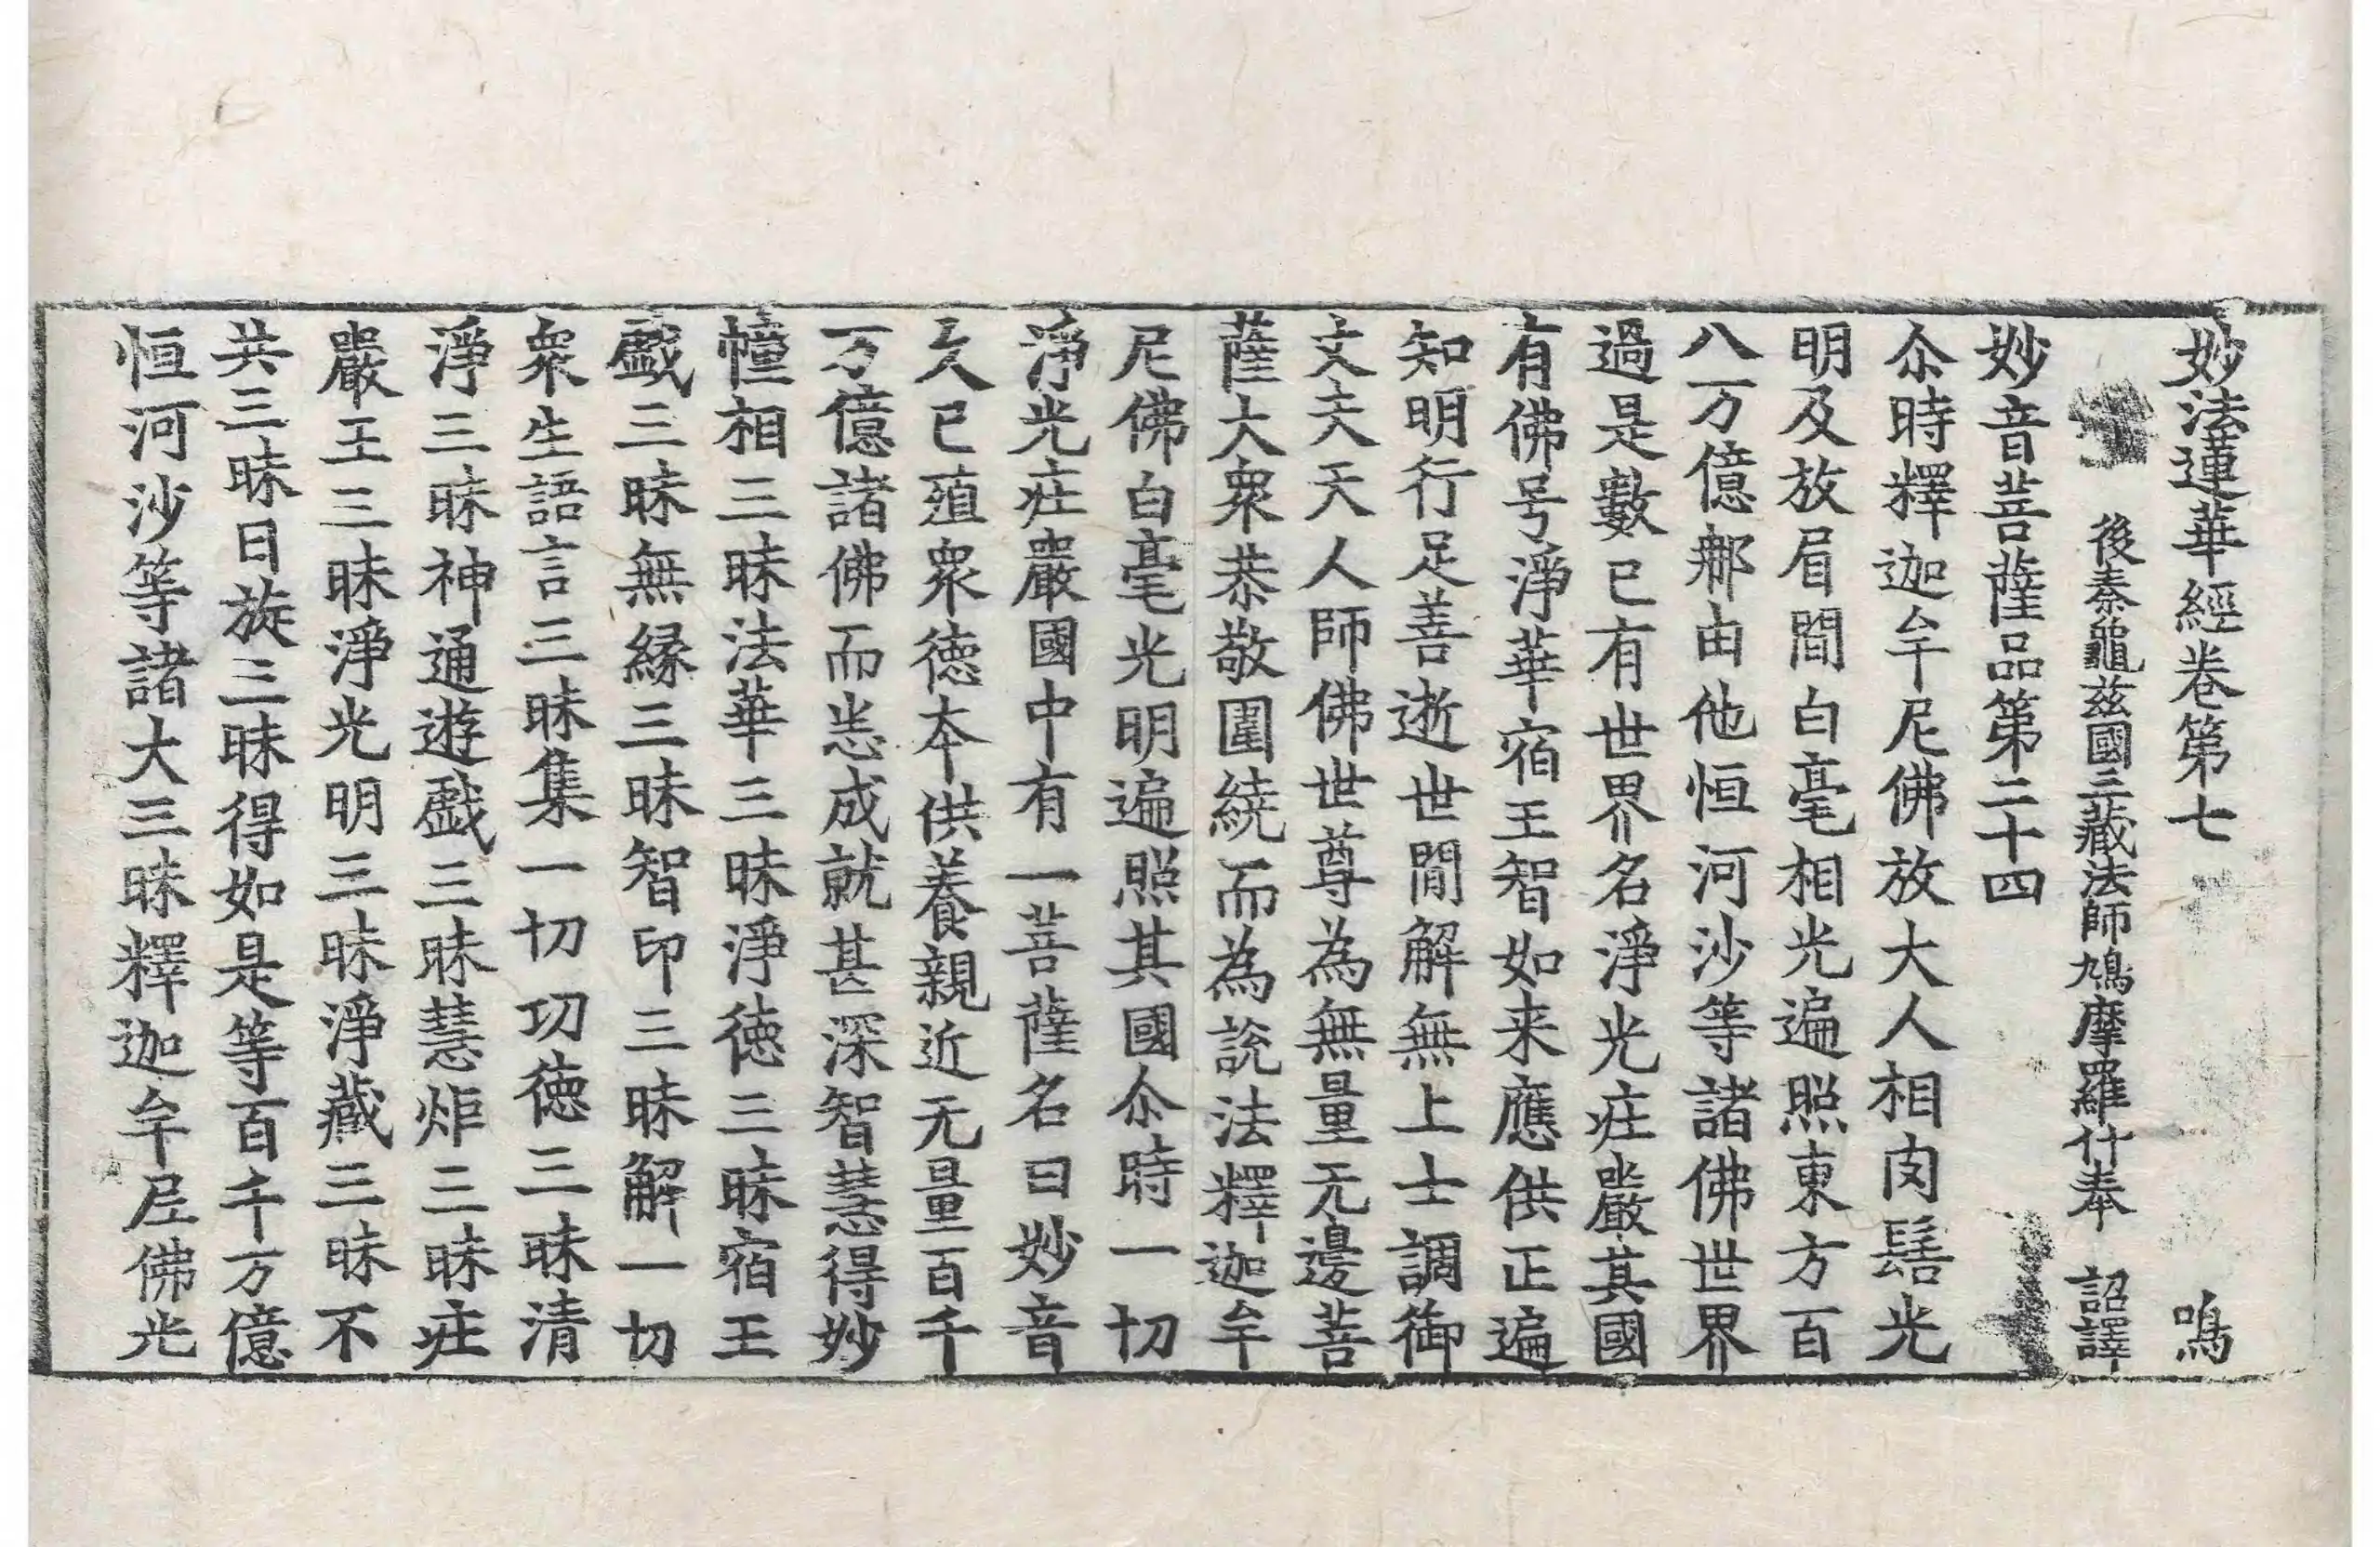 妙法蓮華經卷第七 鳴
後秦龜茲國三藏法師鳩摩羅什奉 詔譯
妙音菩薩品第二十四
尒時釋迦牟尼佛放大人相肉髻光
明及放眉間白毫相光遍照東方百
八万億𨚗由他恒河沙等諸佛世界
過是數已有世界名淨光庄嚴其國
有佛号淨華宿王智如来應供正遍
知明行足善逝世間解無上士調御
丈夫天人師佛世尊為無量无邊菩
薩大衆恭敬圍繞而為說法釋迦牟
尼佛白毫光明遍照其國尒時一切
淨光庄嚴國中有一菩薩名曰妙音
久已殖衆德本供養親近无量百千
万億諸佛而悉成就甚深智慧得妙
幢相三昧法華三昧淨德三昧宿王
戲三昧無緣三昧智印三昧解一切
衆生語言三昧集一切功德三昧清
淨三昧神通遊戲三昧慧炬三昧庄
嚴王三昧淨光明三昧淨藏三昧不
共三昧日旋三昧得如是等百千万億
恒河沙等諸大三昧釋迦牟尼佛光